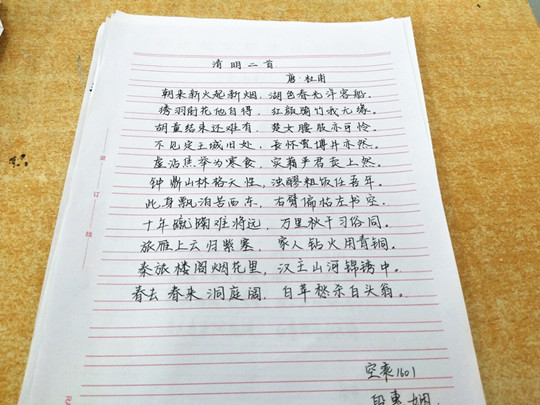 清明二首
唐·杜甫
朝来新火起新烟，湖色春光净客船。
绣羽衔花他自得，红颜骑竹我无缘。
胡童结束还难有，楚女腰肢亦可怜。
不见定王城旧处，长怀贾傅井亦然。
虚沾焦举为寒食，实藉君平卖卜钱。
钟鼎山林各天性，浊醪粗饭任吾年。
此身飘泊苦西东，右臂偏枯左书空。
十年蹴踘难将远，万里秋千习俗同。
旅雁上云归紫塞，家人钻火用青铜。
秦城楼阁烟花里，汉主山河锦绣中。
春去春来洞庭阔，白苹愁杀白头翁。
空乘1601
段惠姻
装
订
线